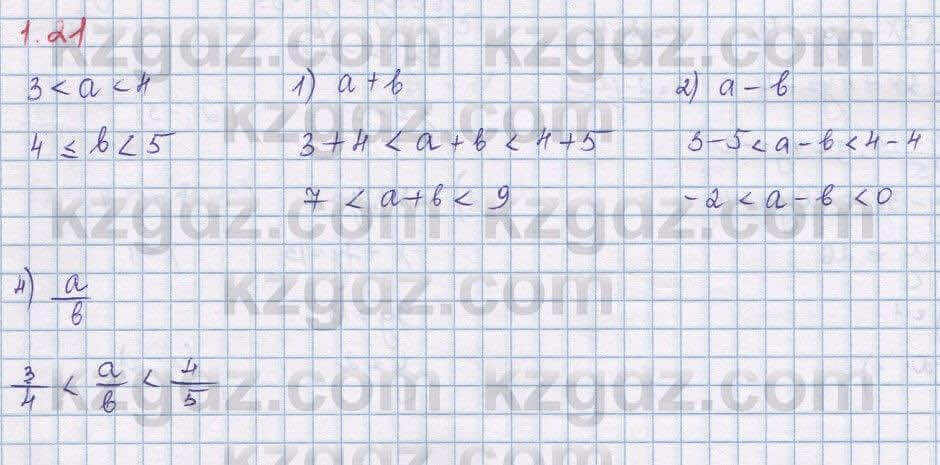 1.21
3 < a < 4
4 ≤ b < 5
1) a + b
3 + 4 < a + b < 4 + 5
7 < a + b < 9
2) a - b
3 - 5 < a - b < 4 - 4
-2 < a - b < 0
4) a/b
3/4 < a/b < 4/5
kzgdz.com kzgdz.com
kzgdz.com
kzgdz.com kzgdz.com
kzgdz.com
kzgdz.com kzgdz.com